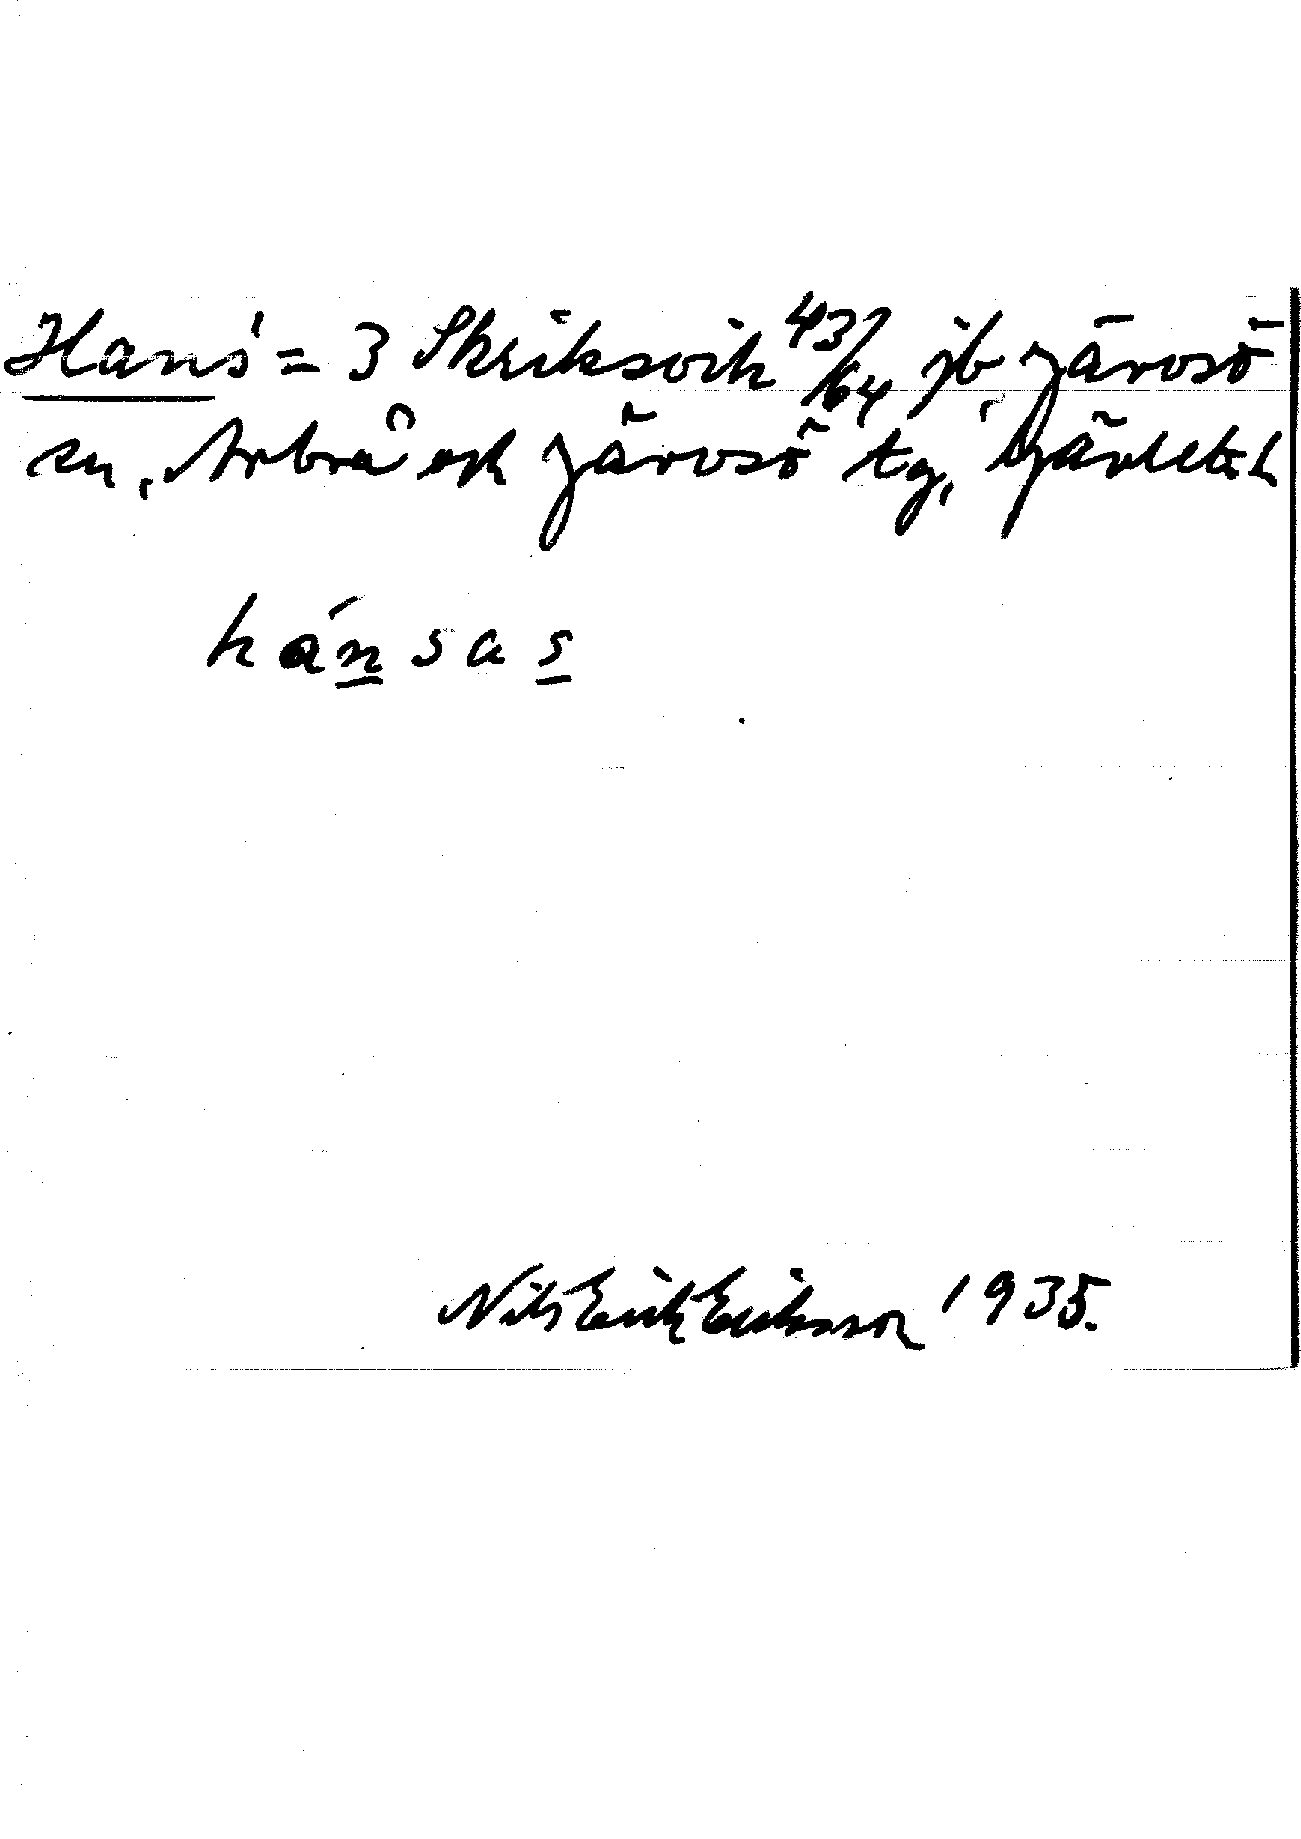 Hans' = 3 Skriksvik 43/64 jb, Järvsö
sn, Arbrå och Järvsö tg,
hánsas
Nils Erik Eriksson 1935.